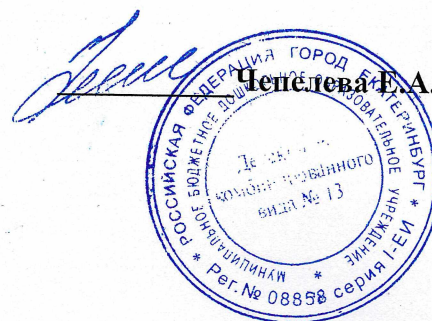 Чепелева Е.А.
РОССИЙСКАЯ ФЕДЕРАЦИЯ ГОРОД ЕКАТЕРИНБУРГ *
МУНИЦИПАЛЬНОЕ БЮДЖЕТНОЕ ДОШКОЛЬНОЕ ОБРАЗОВАТЕЛЬНОЕ УЧРЕЖДЕНИЕ *
комбинированного
вида № 13
* Рег.№ серия I-ЕИ